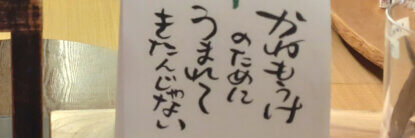 かねもうけ
のために
うまれて
きたんじゃない